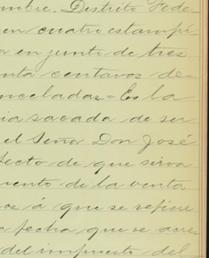 mbre. Distrito Fede
en cuatro estampi
a en junto de tres
nta centavos de
nceladas - Es la
ia sacada de ser
el Señor Don José
fecto de que sirva
mento de la venta
ce á que se refiere
a fecha que se
del impuesto del